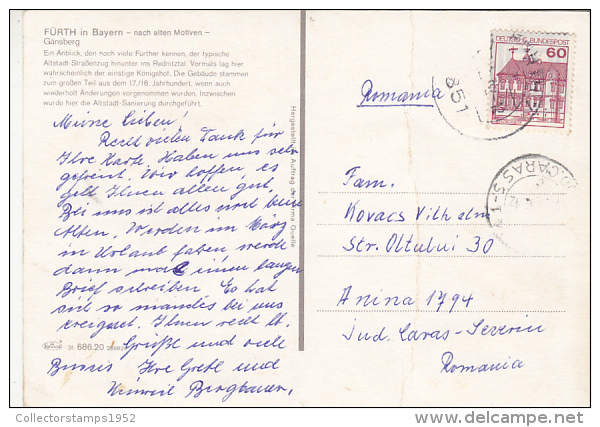 FÜRTH in Bayern – nach alten Motiven –
Gänsberg
Ein Anblick, den noch viele Fürther kennen, der typische
Altstadt-Straßenzug hinunter ins Rednitztal. Vormals lag hier
wahrscheinlich der einstige Königshof. Die Gebäude stammen
zum großen Teil aus dem 17./18. Jahrhundert, wenn auch
wiederholt Änderungen vorgenommen wurden. Inzwischen
wurde hier die Altstadt-Sanierung durchgeführt.
Meine Lieben!
Recht vielen Dank für
Ihre Karte. Haben uns sehr
gefreut. Wir hoffen, es
geht Ihnen allen gut.
Bei uns ist alles noch beim
Alten. Werden im März
in Urlaub fahren werde
dann mal einen langen
Brief schreiben. Es hat
sich so manches bei uns
ereignet. Ihnen recht lb.
Grüße und viele
Bussis Ihre Gretl und
Bergbauer.
686.20
Hergestellt im Auftrag der Firma Quelle
DEUTSCHE BUNDESPOST
60
851
CARAS S
Romania
Fam.
Kovacs Vilhelm
Str. Oltului 30
Anina 1794
Jud. Caras-Severin
Romania
Collectorstamps1952
delcampe.net